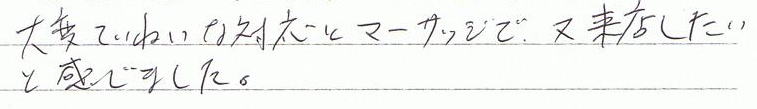 大変ていねいな対応とマーサッジで、又来店したい
と感じました。